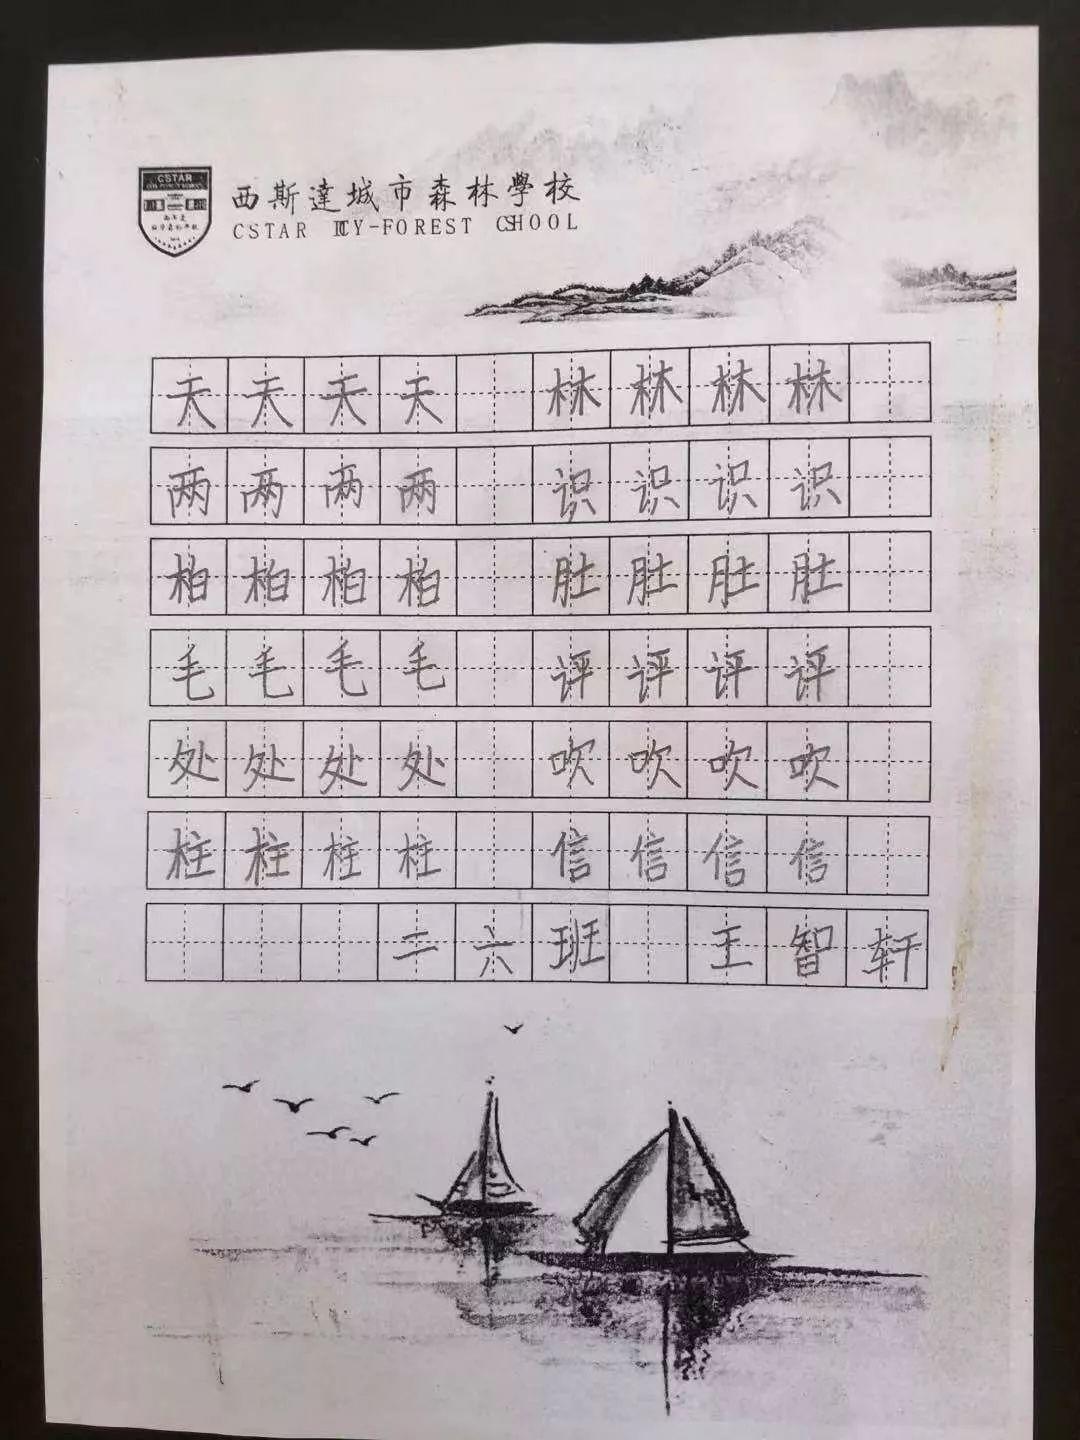 CSTAR
西斯達城市森林學校
CSTAR CITY-FOREST SCHOOL
天天天天 林林林林
两两两两 识识识识
柏柏柏柏 肚肚肚肚
毛毛毛毛 评评评评
处处处处 吹吹吹吹
柱柱柱柱 信信信信
二六班 王智轩